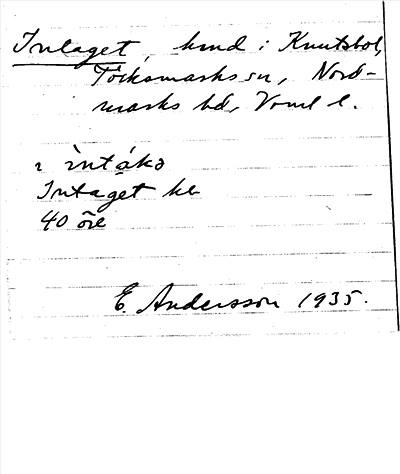 Intaget, hmd i Knutsbol,
Töcksmarks sn, Nord-
marks hd, Vrml l.
ı ìntákə
Intaget he
40 öre
E. Andersson 1935.